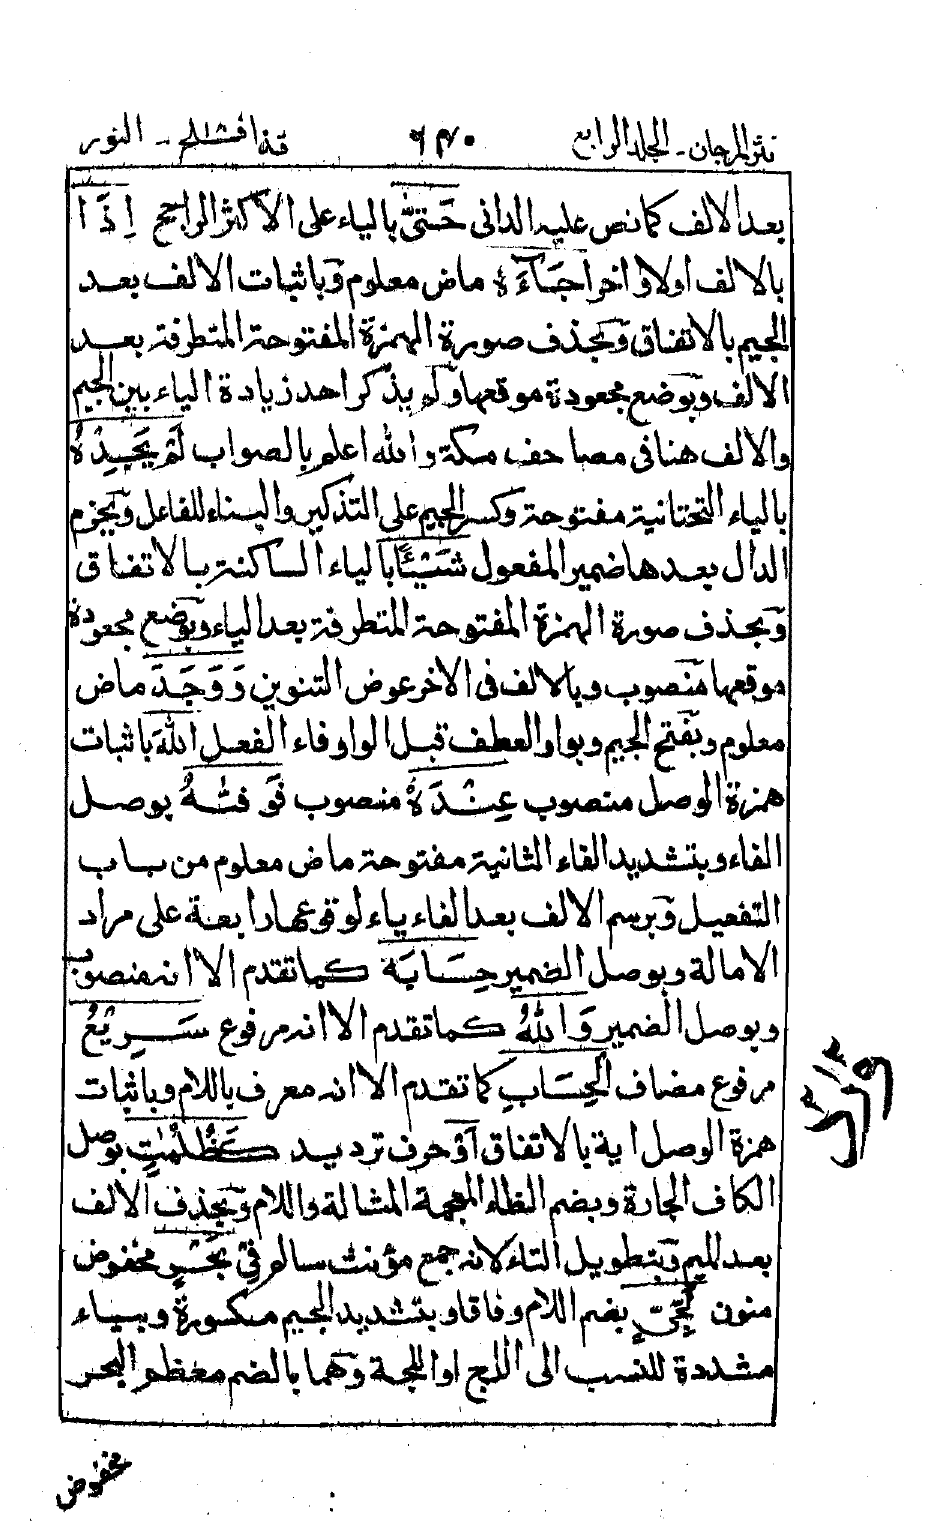 نثر المرجان ـ الجلد الرابع ٦٣٠ قد افلح ـ النور
بعد الالف كما نص عليه الدانى حَتّٰىٓ بالياء على الاكثر الراجح اِذَا
بالالف اولا و اخرا جَآءَهٗ ماض معلوم و باثبات الالف بعد
الجيم بالاتفاق وبحذف صورة الهمزة المفتوحة المتطرفة بعد
الالف وبوضع مجعودة موقعها ولم يذكر احد زيادة الياء بين الجيم
والالف هنا فى مصاحف مكة والله اعلم بالصواب لَمْ يَجِدْهُ
بالياء التحتانية مفتوحة وكسر الجيم على التذكير والبناء للفاعل وبجزم
الدال بعدها ضمير المفعول شَيْئًا بالياء الساكنة بالاتفاق
وبحذف صورة الهمزة المفتوحة المتطرفة بعد الياء وبوضع مجعودة
موقعها منصوب وبالالف فى الاخر عوض التنوين وَوَجَدَ ماض
معلوم وبفتح الجيم وبواو العطف قبل الواو فاء الفعل اللهَ باثبات
همزة الوصل منصوب عِنْدَهٗ منصوب فَوَفّٰىهُ بوصل
الفاء وبتشديد الفاء الثانية مفتوحة ماض معلوم من باب
التفعيل وبرسم الالف بعد الفاء ياء لوقوعها رابعة على مراد
الامالة وبوصل الضمير حِسَابَهٗ كما تقدم الا انه منصوب
وبوصل الضمير وَاللهُ كما تقدم الا انه مرفوع سَرِيْعُ
مرفوع مضاف الْحِسَابِ كما تقدم الا انه معرف باللام وباثبات
همزة الوصل اية بالاتفاق اَوْ حرف ترديد كَظُلُمٰتٍ بوصل
الكاف الجارة وبضم الظاء المعجمة المشالة واللام وبحذف الالف
بعد الميم وبتطويل التاء لانه جمع مؤنث سالم فِىْ بَحْرٍ مخفوض
منون لُّجِّىٍّ بضم اللام وفاقا وبتشديد الجيم مكسورة وبياء
مشددة للنسب الى اللج او اللجة وهما بالضم معظم البحر
مخفوض